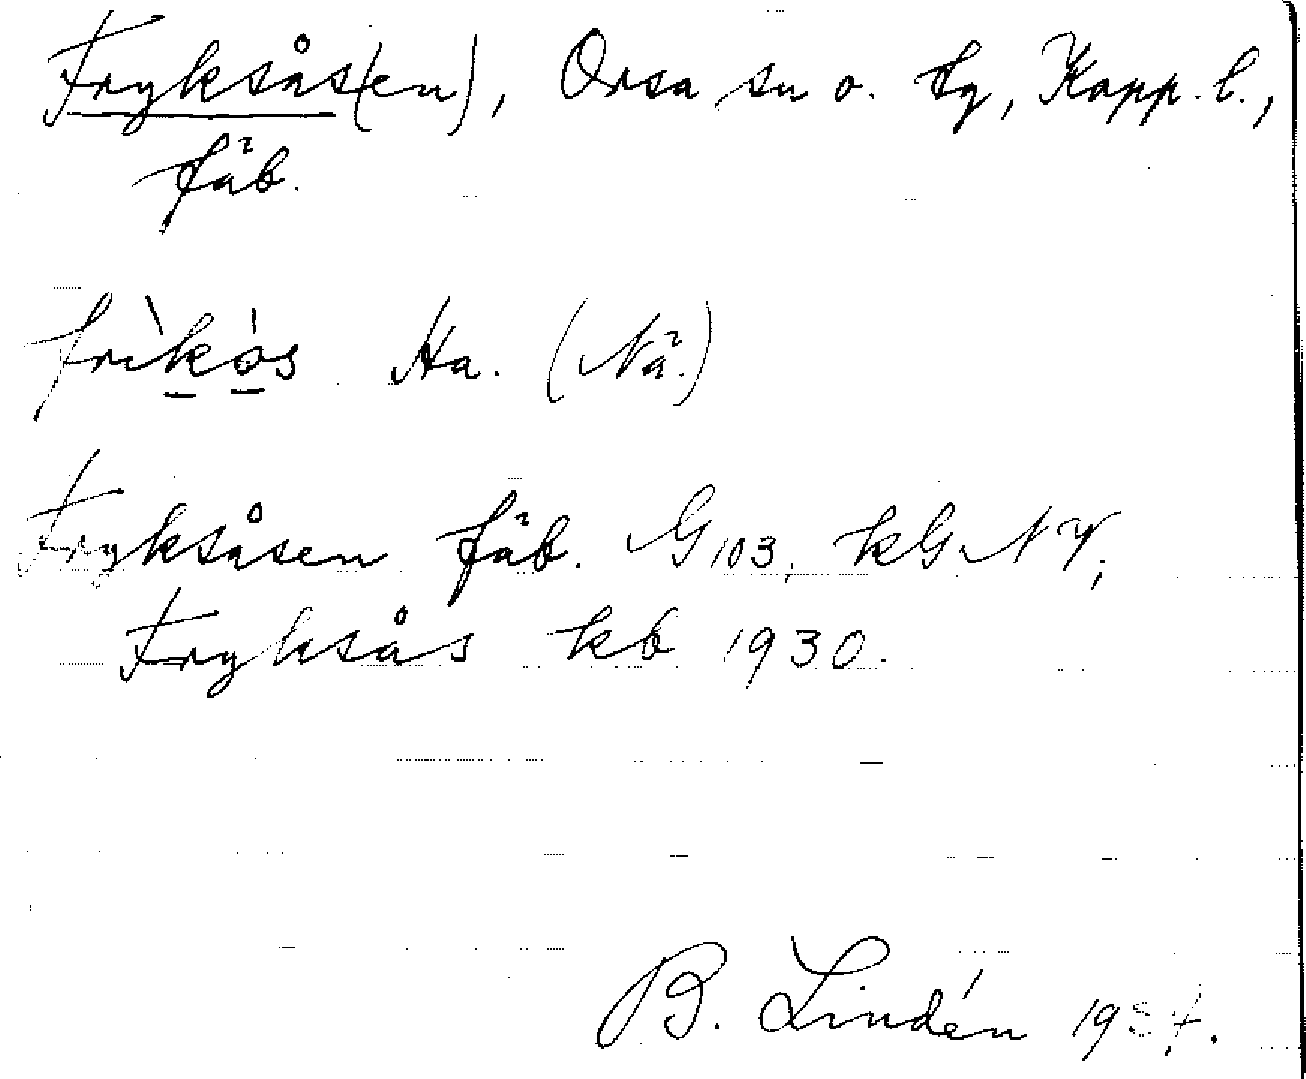 Fryksås(en), Orsa sn o. tg, Kopp. l.,
fäb.
frìkós Ha. (Nä.)
Fryksåsen fäb. G103, kGNV;
Fryksås kb 1930.
B. Lindén